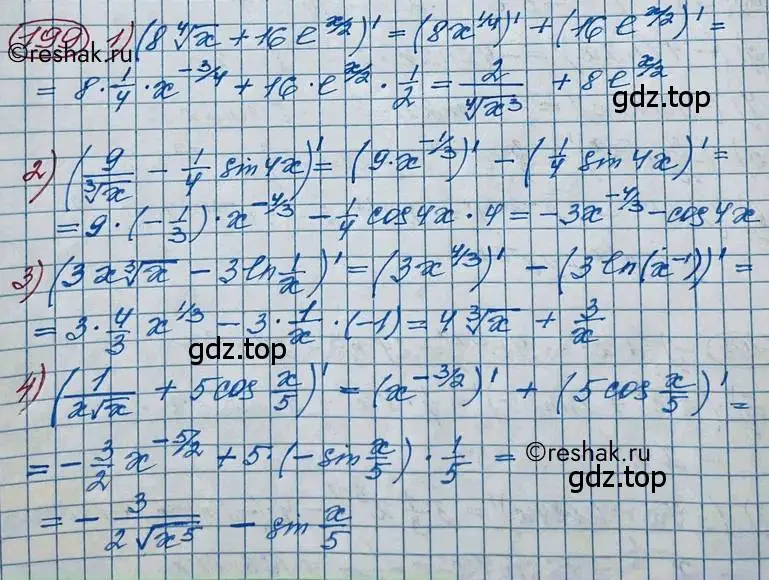 199 1) (8⁴√x + 16 e^(x/2))' = (8x^(1/4))' + (16 e^(x/2))' =
= 8 · 1/4 · x^(-3/4) + 16 · e^(x/2) · 1/2 = 2/⁴√x³ + 8e^(x/2)
gdz.top
2) (9/³√x - 1/4 sin 4x)' = (9·x^(-1/3))' - (1/4 sin 4x)' =
= 9 · (-1/3) · x^(-4/3) - 1/4 cos 4x · 4 = -3x^(-4/3) - cos 4x
3) (3x³√x - 3 ln 1/x)' = (3x^(4/3))' - (3 ln(x^(-1)))' =
= 3 · 4/3 x^(1/3) - 3 · 1/x · (-1) = 4³√x + 3/x
gdz.top
4) (1/(x√x) + 5 cos x/5)' = (x^(-3/2))' + (5 cos x/5)' =
= -3/2 x^(-5/2) + 5 · (-sin x/5) · 1/5 =
©reshak.ru
gdz.top
= - 3/(2√x⁵) - sin x/5
©reshak.ru